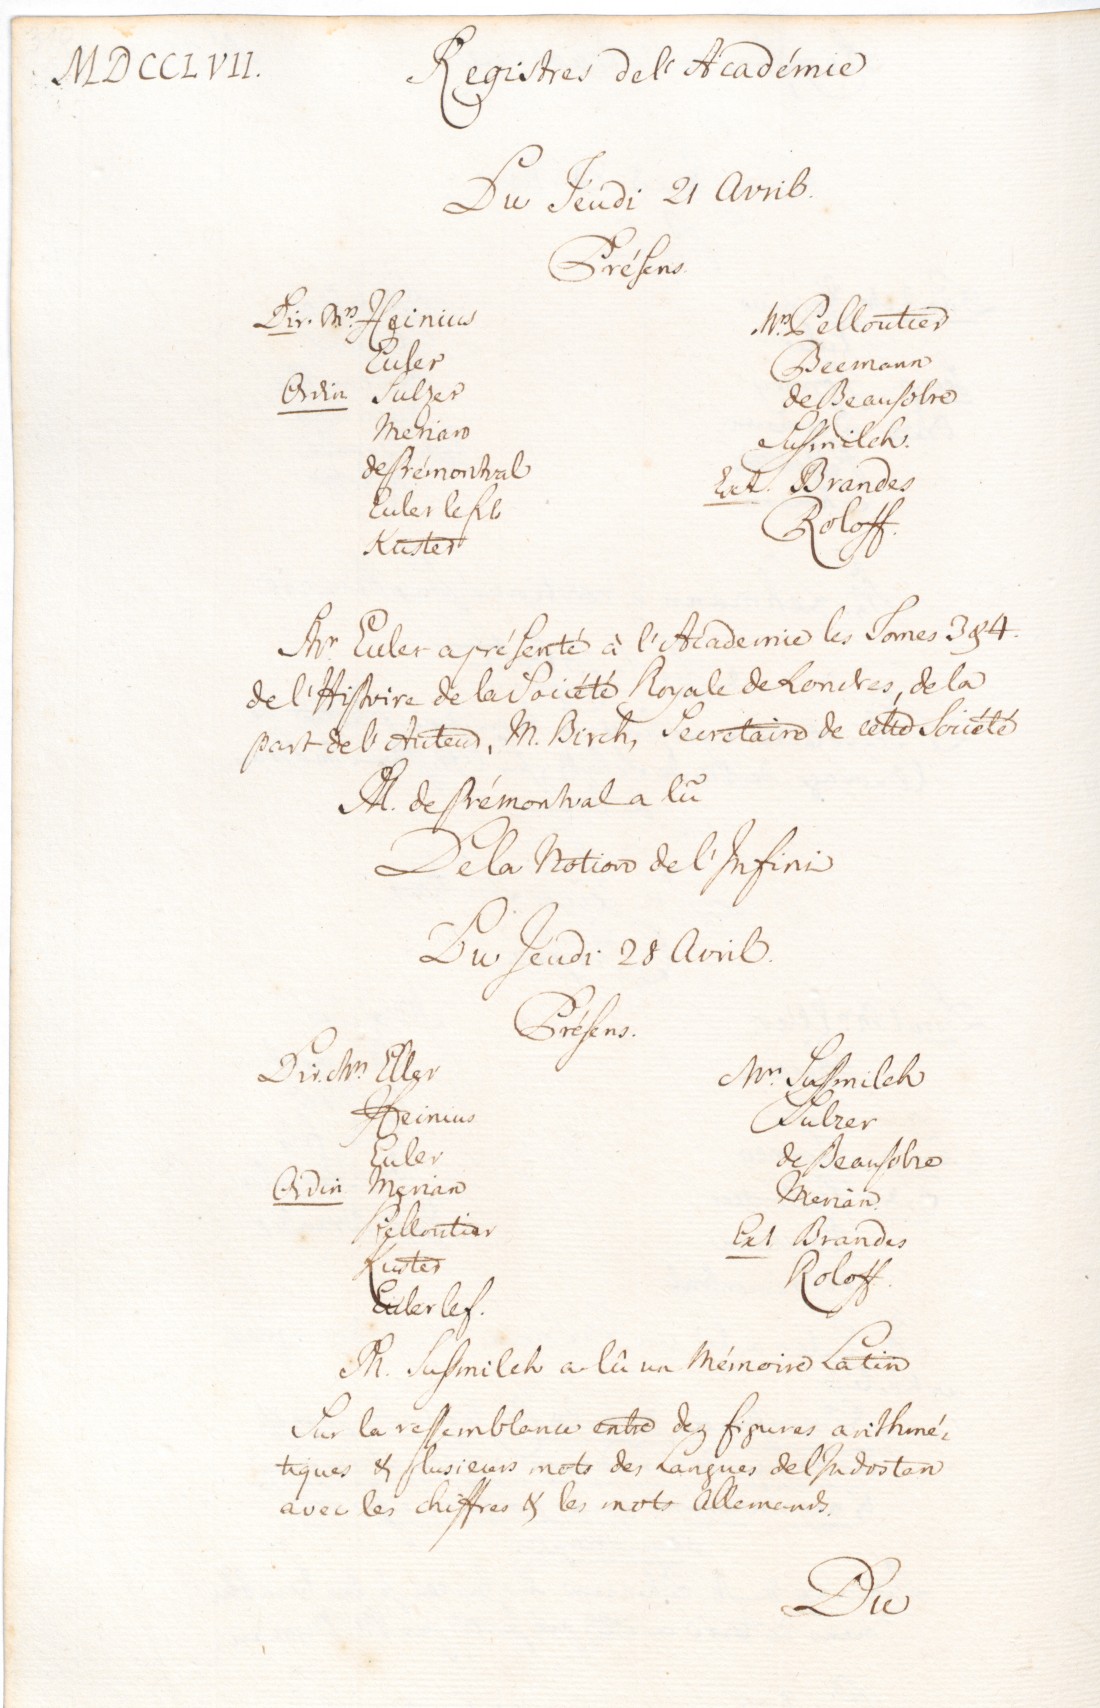 MDCCLVII.
Registres de l'Académie
Du Jeudi 21 Avril.
Présens.
Dir. Mrs. Heinius
Euler
Ordin Sulzer
Merian
de Prémontval
Euler le fils
Küster
Mrs. Pelloutier
Becmann
de Beausobre
Sussmilch.
Ext. Brandes
Roloff.
Mr. Euler a présenté à l'Academie les Tomes 3 & 4.
de l'Histoire de la Société Royale de Londres, de la
part de l'Auteur, M. Birch, Secretaire de cette Société
M. de Prémontval a lû
De la Notion de l'Infini
Du Jeudi 28 Avril.
Présens.
Dir. Mrs Eller
Heinius
Euler
Ordin Merian
Pelloutier
Kuster
Euler le f.
Mrs. Sussmilch
Sulzer
de Beausobre
Merian.
Ext Brandes
Roloff.
M. Sussmilch a lû un Mémoire Latin
Sur la ressemblance entre des figures arithmé-
tiques & plusieurs mots des Langues de l'Indostan
avec les chiffres & les mots Allemands.
Du